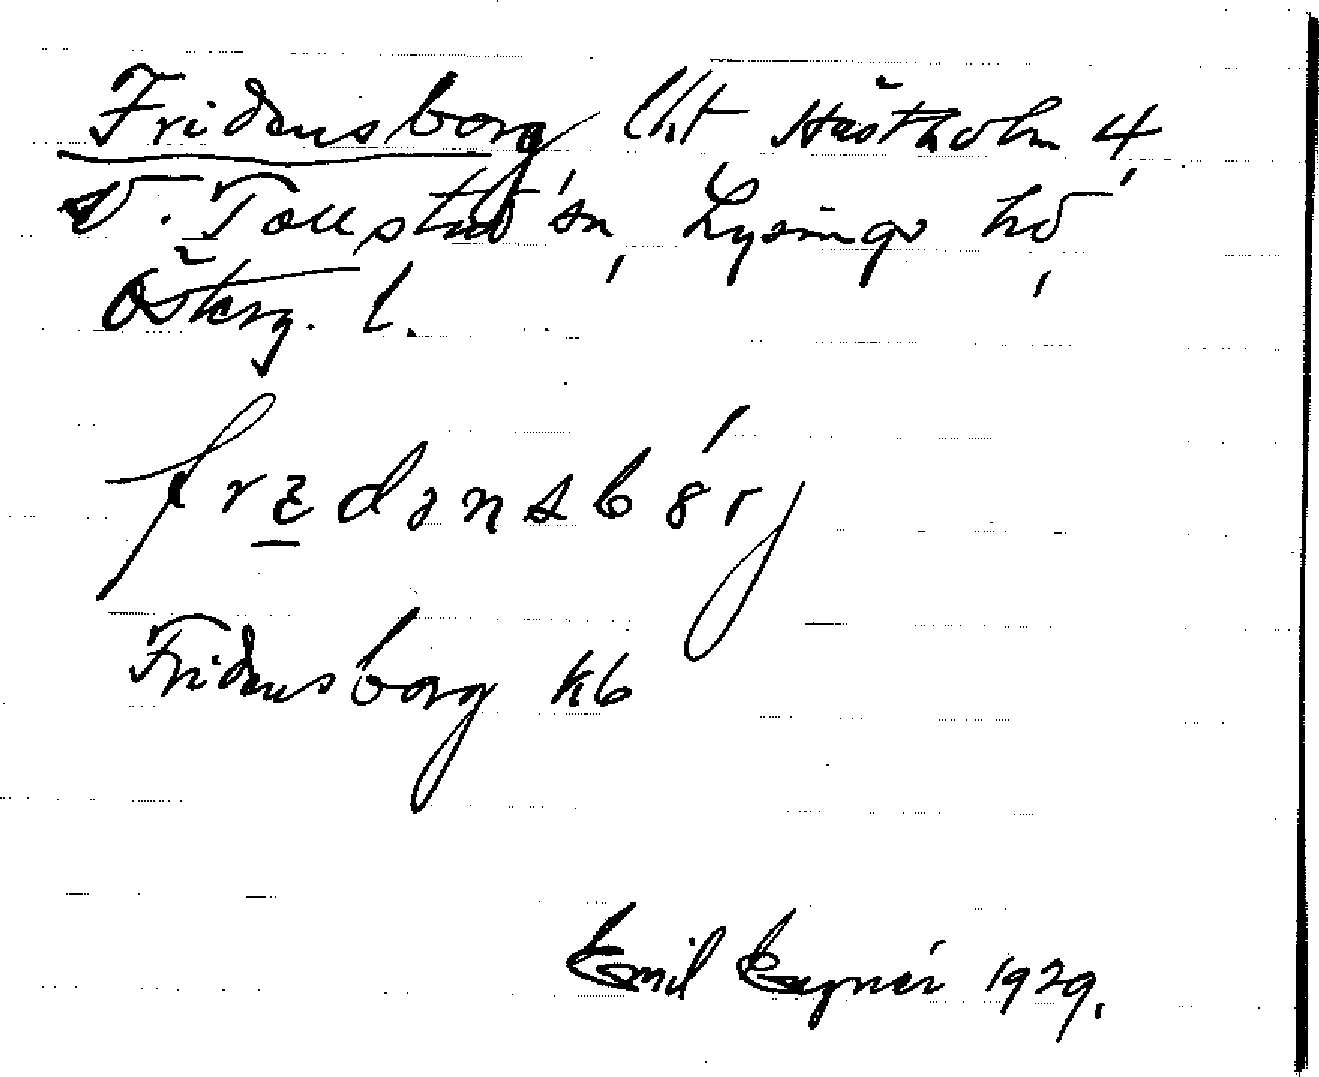 Fridensborg lht Hästholm 4,
V. Tollstad sn, Lysings hd,
Österg. l.
fredənsbǿrj
Fridensborg kb
Emil 1929.